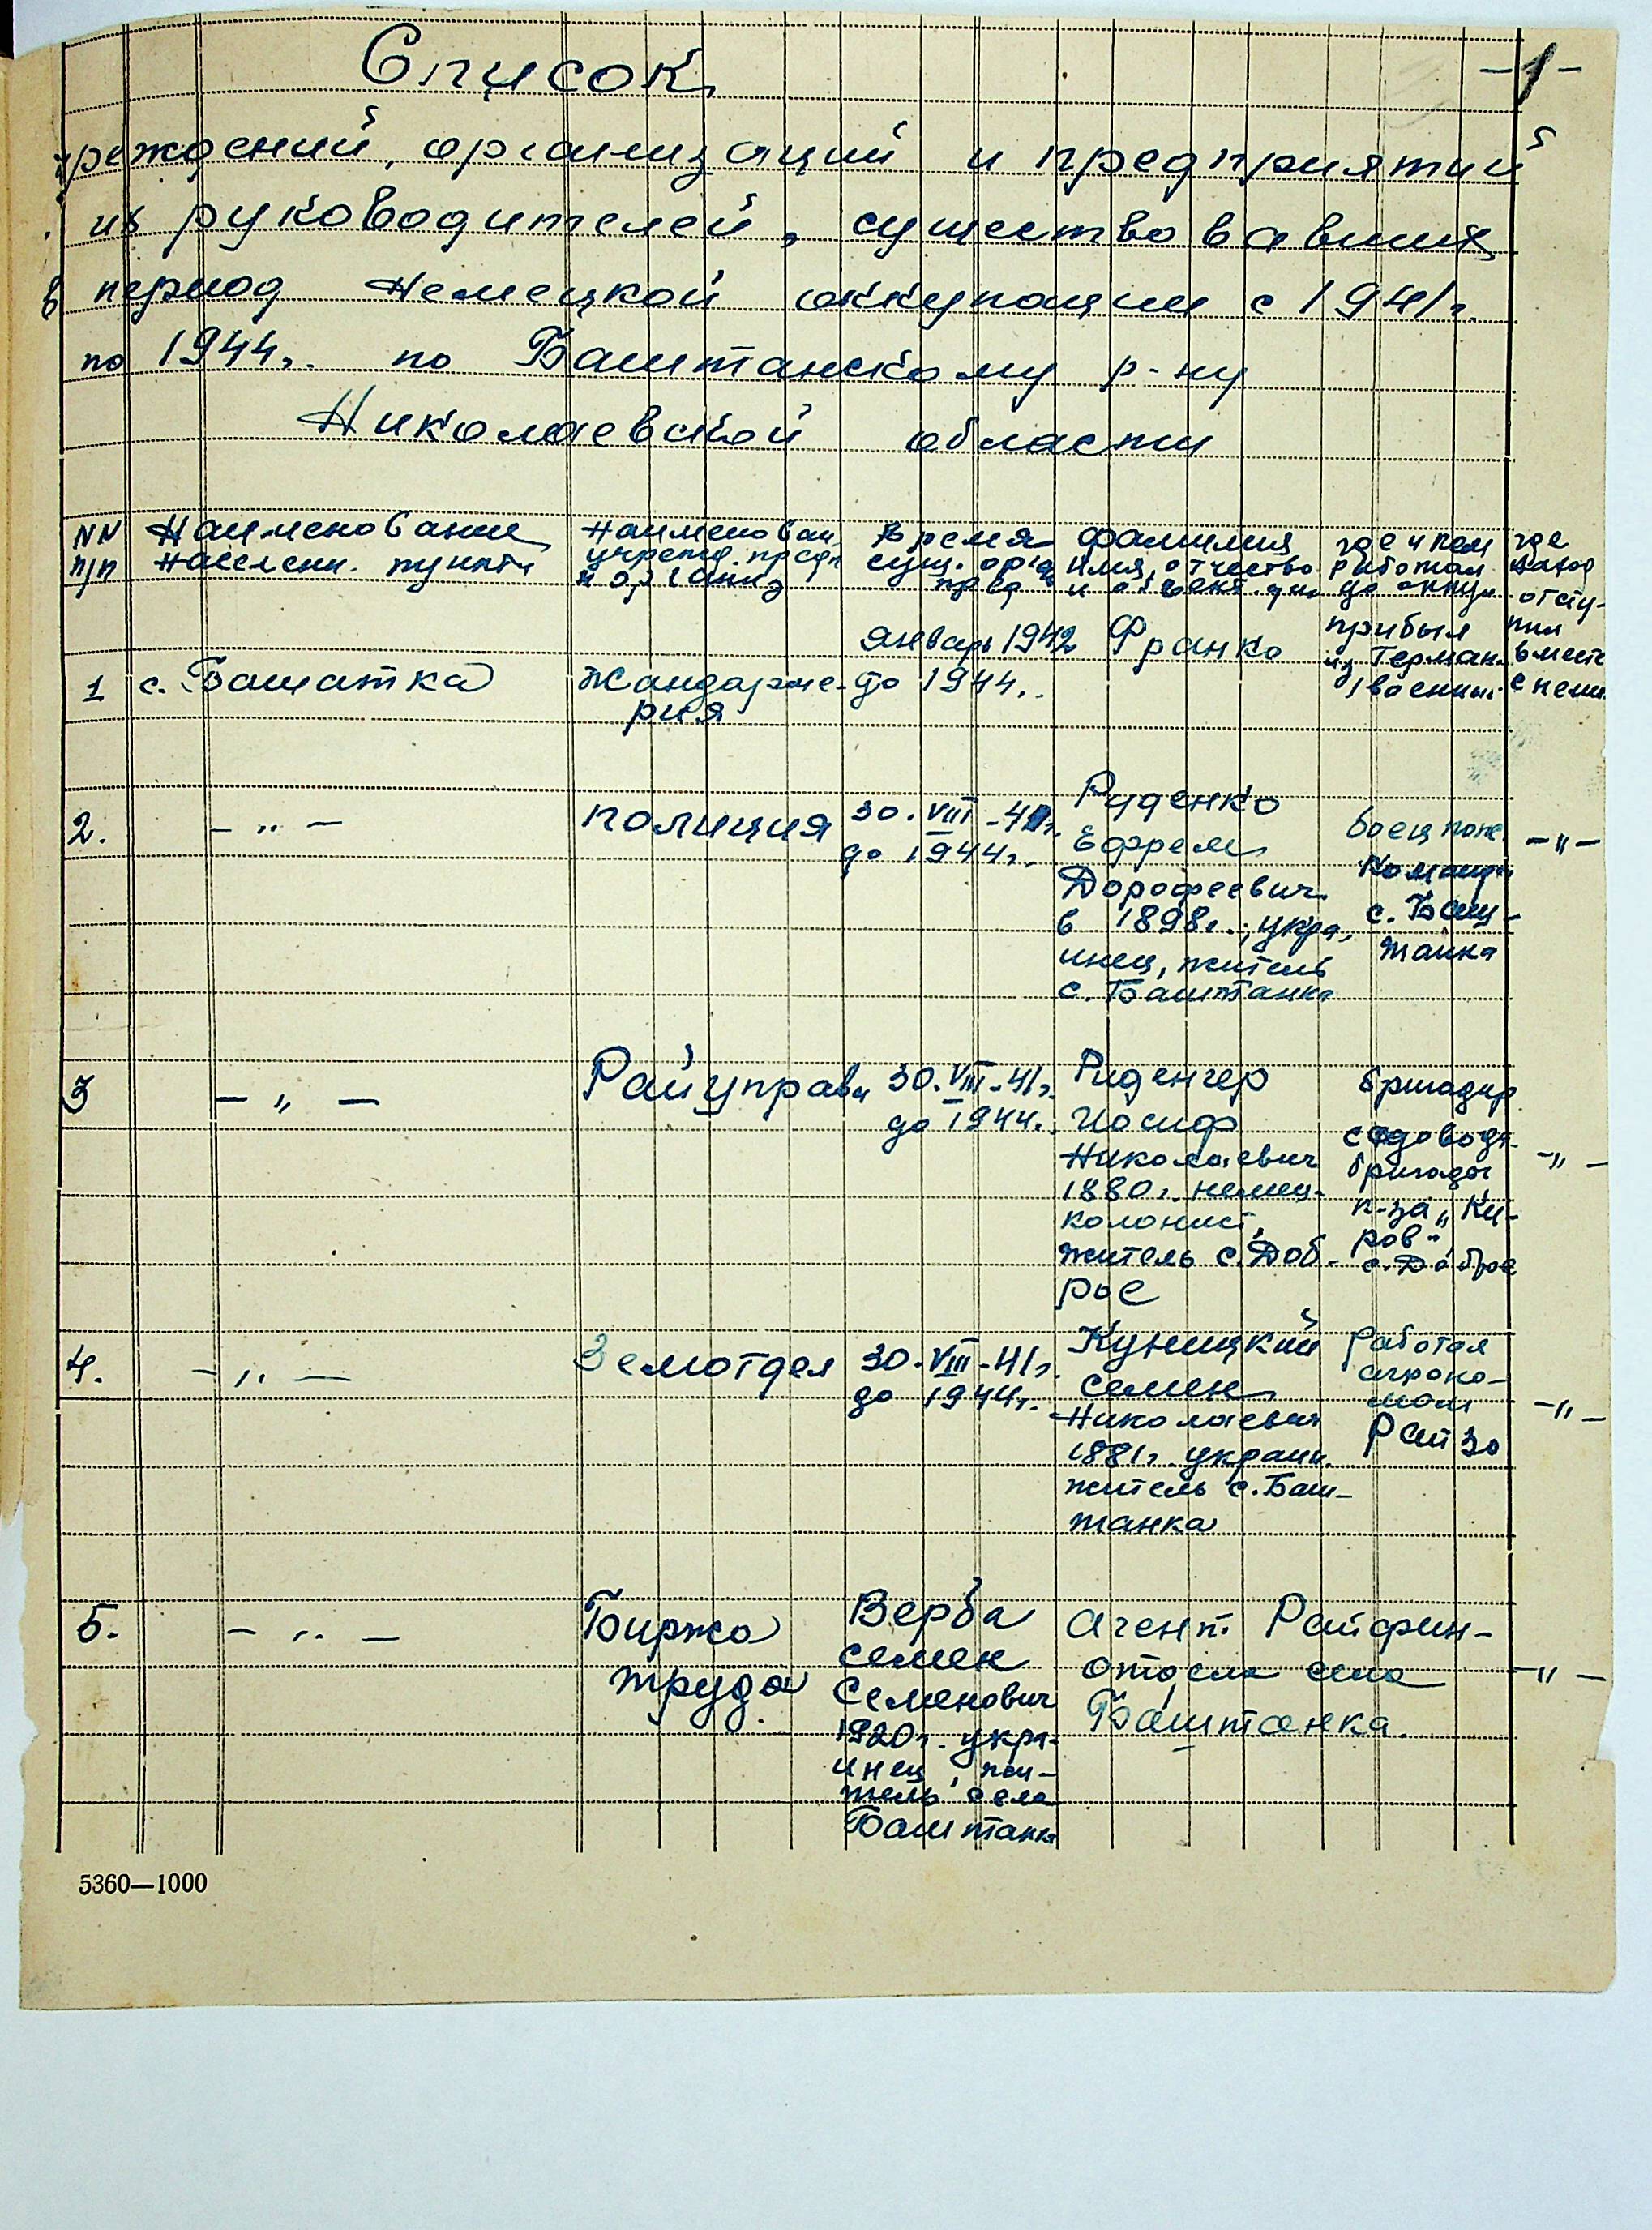 -1-
Список
учреждений, организаций и предприятий
их руководителей, существовавших
в период немецкой оккупации с 1941г.
по 1944г. по Баштанскому р-ну
Николаевской области
NN п/п
Наименование населенн. пункта
Наименован.
учрежд. предп
и организ
Время
сущ. орга
пред
фамилия
имя, отчество
и объект. дан
где и кем
работал
до оккуп
где
наход
1
с. Башатка
Жандарме-
рия
январь 1942
до 1944г.
Франко
прибыл
из Герман.
военным
отсту-
пил
вместе
с нем.
2.
- „ -
полиция
30.VIII-41г.
до 1944г.
Руденко
Ефрем
Дорофеевич
в 1898г., укра,
инец, житель
с. Баштанка
боец пож.
команды
с. Баш-
танка
- „ -
3
- „ -
Райуправа
30.VIII-41г.
до 1944г.
Риденгер
Иосиф
Николаевич
1880г. немец-
колонист,
житель с. Доб-
рое
бригадир
садоводч.
бригады
к-за „Ки-
ров“
с. Доброе
- „ -
4.
- „ -
Земотдел
30.VIII-41г.
до 1944г.
Куницкий
Семен
Николаевич
1881г. украин.
житель с. Баш-
танка
работал
агроно-
мом
Райзо
- „ -
5.
- „ -
Биржа
труда
Верба
Семен
Семенович
1920г. укра-
инец, жи-
тель села
Баштанка
агент Райфин-
отдела села
Баштанка.
- „ -
5360—1000